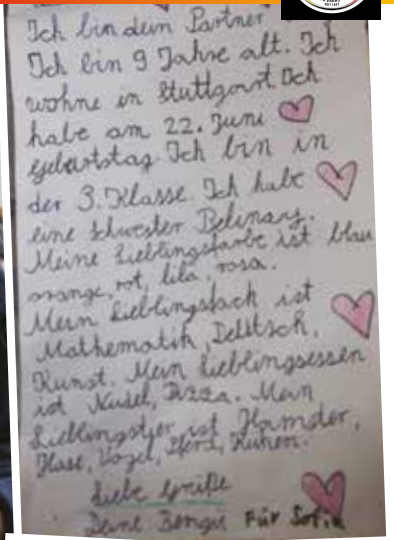 Ich bin dein Partner.
Ich bin 9 Jahre alt. Ich
wohne in Stuttgart. Ich
habe am 22. Juni
Geburtstag. Ich bin in
der 3. Klasse. Ich habe
eine Schwester
Meine Lieblingsfarbe ist blau
orange, rot, lila, rosa.
Mein Lieblingsfach ist
Mathematik, Deutsch,
Kunst. Mein Lieblingsessen
ist Nudel, Pizza. Mein
Lieblingstier ist Hamster,
Hase, Vogel, Pferd,
Liebe Grüße
Deine Für Sofia